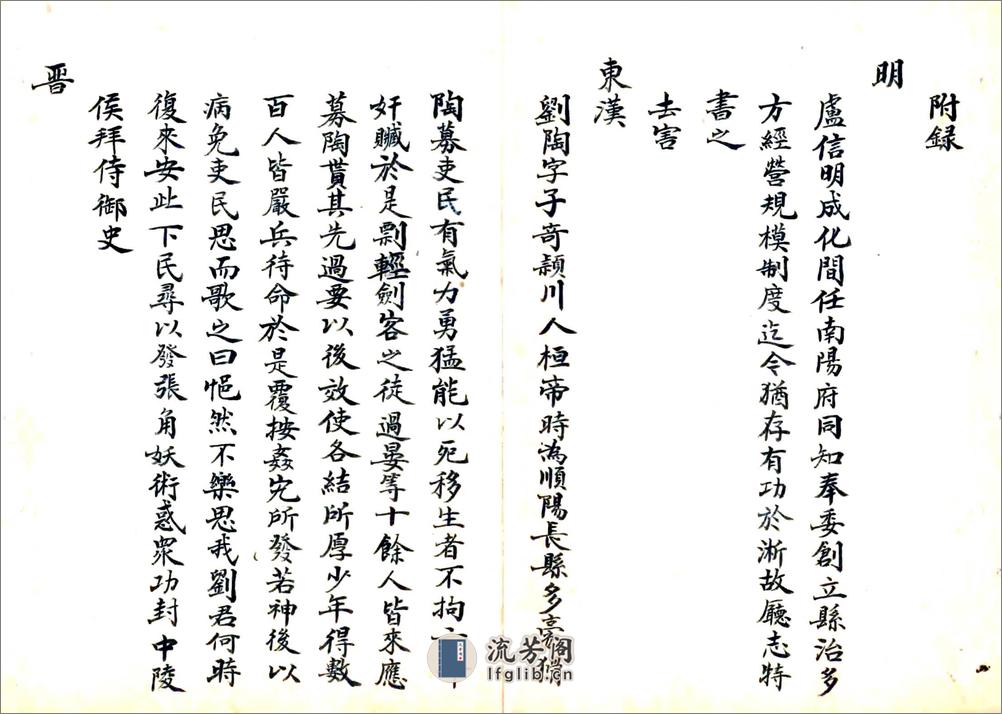 附録
明
盧信明成化間任南陽府同知奉委創立縣治多
方經營規模制度迄今猶存有功於淅故廳志特
書之
去害
東漢
劉陶字子竒頴川人桓帝時為順陽長縣多豪猾
陶募吏民有氣力勇猛能以死移生者不拘
奸贓於是剽輕劍客之徒過晏等十餘人皆來應
募陶貰其先過要以後效使各結所厚少年得數
百人皆嚴兵待命於是覆按姦宄所發若神後以
病免吏民思而歌之曰悒然不樂思我劉君何時
復來安此下民尋以發張角妖術惑眾功封中陵
侯拜侍御史
晋
流芳阁
lfglib.cn